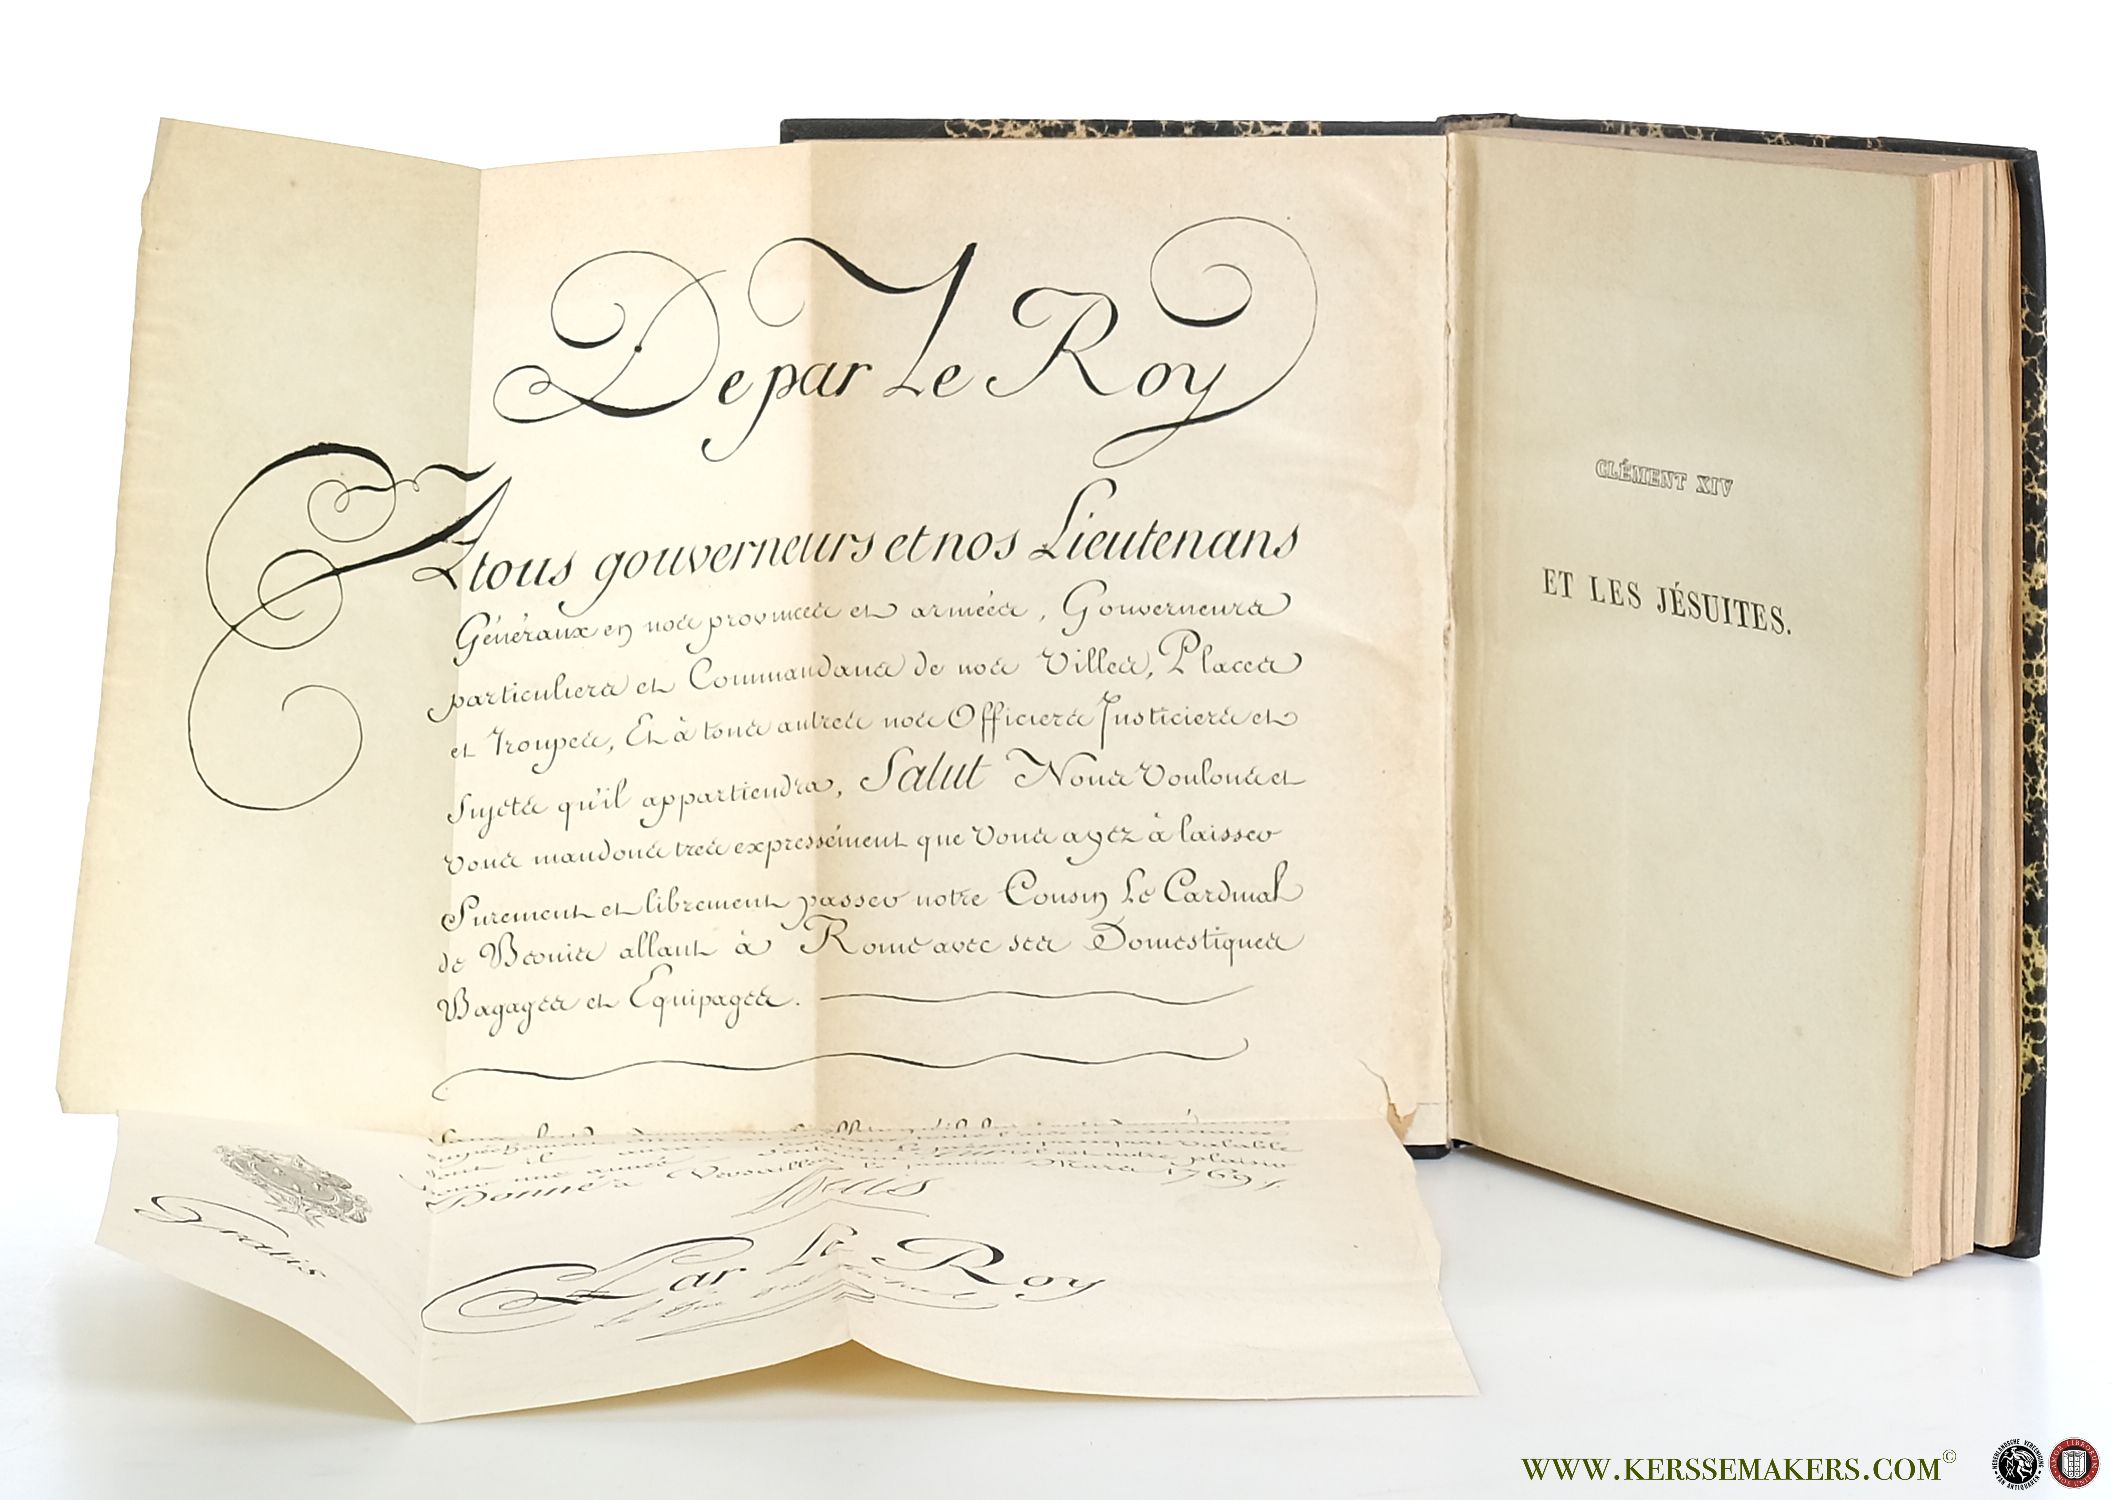 De par Le Roy
A tous gouverneurs et nos Lieutenans
Généraux en nos provinces et armées, Gouverneurs
particuliers et Commandans de nos Villes, Places
et Troupes, Et à tous autres nos Officiers Justiciers et
Sujets qu'il appartiendra, Salut Nous voulons et
vous mandons tres expressément que vous ayez à laisser
Surement et librement passer notre Cousin Le Cardinal
de Bernis allant à Rome avec ses Domestiques
Bagages et Equipages.
passeport valable
plaisir
Donné à Versailles le premier Mars 1769
Louis
Par Le Roy
Gratis
CLÉMENT XIV
ET LES JÉSUITES.
WWW.KERSSEMAKERS.COM©